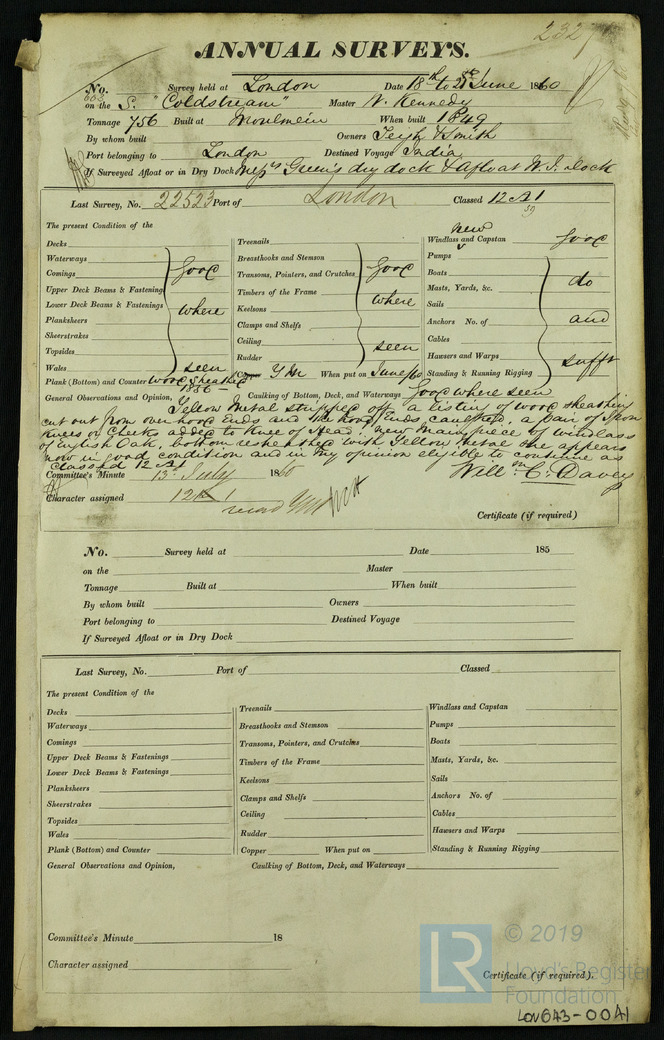 2327
ANNUAL SURVEYS.
No. 603 Survey held at London Date 18th to 25th June 1860
on the S. "Coldstream" Master W. Kennedy
Tonnage 756 Built at Moulmein When built 1849
By whom built Owners Teigh & Smith
Port belonging to London Destined Voyage India
If Surveyed Afloat or in Dry Dock Messrs Green's dry dock & Afloat W. I. Dock
Last Survey, No. 22523 Port of London Classed 12 A1
The present Condition of the
Decks
Waterways
Comings
Upper Deck Beams & Fastening
Lower Deck Beams & Fastenings
Planksheers
Sheerstrakes
Topsides
Wales
good where seen
Plank (Bottom) and Counter wood sheathed 1856
Treenails
Breasthooks and Stemson
Transoms, Pointers, and Crutches
Timbers of the Frame
Keelsons
Clamps and Shelfs
Ceiling
Rudder
good where seen
Copper Y M When put on June/60
new
Windlass and Capstan good
Pumps
Boats
Masts, Yards, &c.
Sails
Anchors No. of
Cables
Hawsers and Warps
Standing & Running Rigging
do and sufft
General Observations and Opinion, Caulking of Bottom, Deck, and Waterways good where seen
Yellow Metal stripped off a listing of wood sheathing
cut out from own hood ends and the hood ends caulked, a pair of Iron
Knees or Cheeks added to Knee of Head, new Main piece of windlass
of English Oak, bottom resheathed with Yellow Metal she appears
now in good condition and in my opinion eligible to continue as
Classed 12 A1
Willm C. Davey
Committee's Minute 13th July 1860
Character assigned 12 A 1
record YM
Certificate (if required)
No. Survey held at Date 185
on the Master
Tonnage Built at When built
By whom built Owners
Port belonging to Destined Voyage
If Surveyed Afloat or in Dry Dock
Last Survey, No. Port of Classed
The present Condition of the
Decks
Waterways
Comings
Upper Deck Beams & Fastenings
Lower Deck Beams & Fastenings
Planksheers
Sheerstrakes
Topsides
Wales
Plank (Bottom) and Counter
Treenails
Breasthooks and Stemson
Transoms, Pointers, and Crutches
Timbers of the Frame
Keelsons
Clamps and Shelfs
Ceiling
Rudder
Copper When put on
Windlass and Capstan
Pumps
Boats
Masts, Yards, &c.
Sails
Anchors No. of
Cables
Hawsers and Warps
Standing & Running Rigging
General Observations and Opinion, Caulking of Bottom, Deck, and Waterways
Committee's Minute 18
Character assigned
Certificate (if required).
LR © 2019
Lloyd's Register
Foundation
LON643-0041